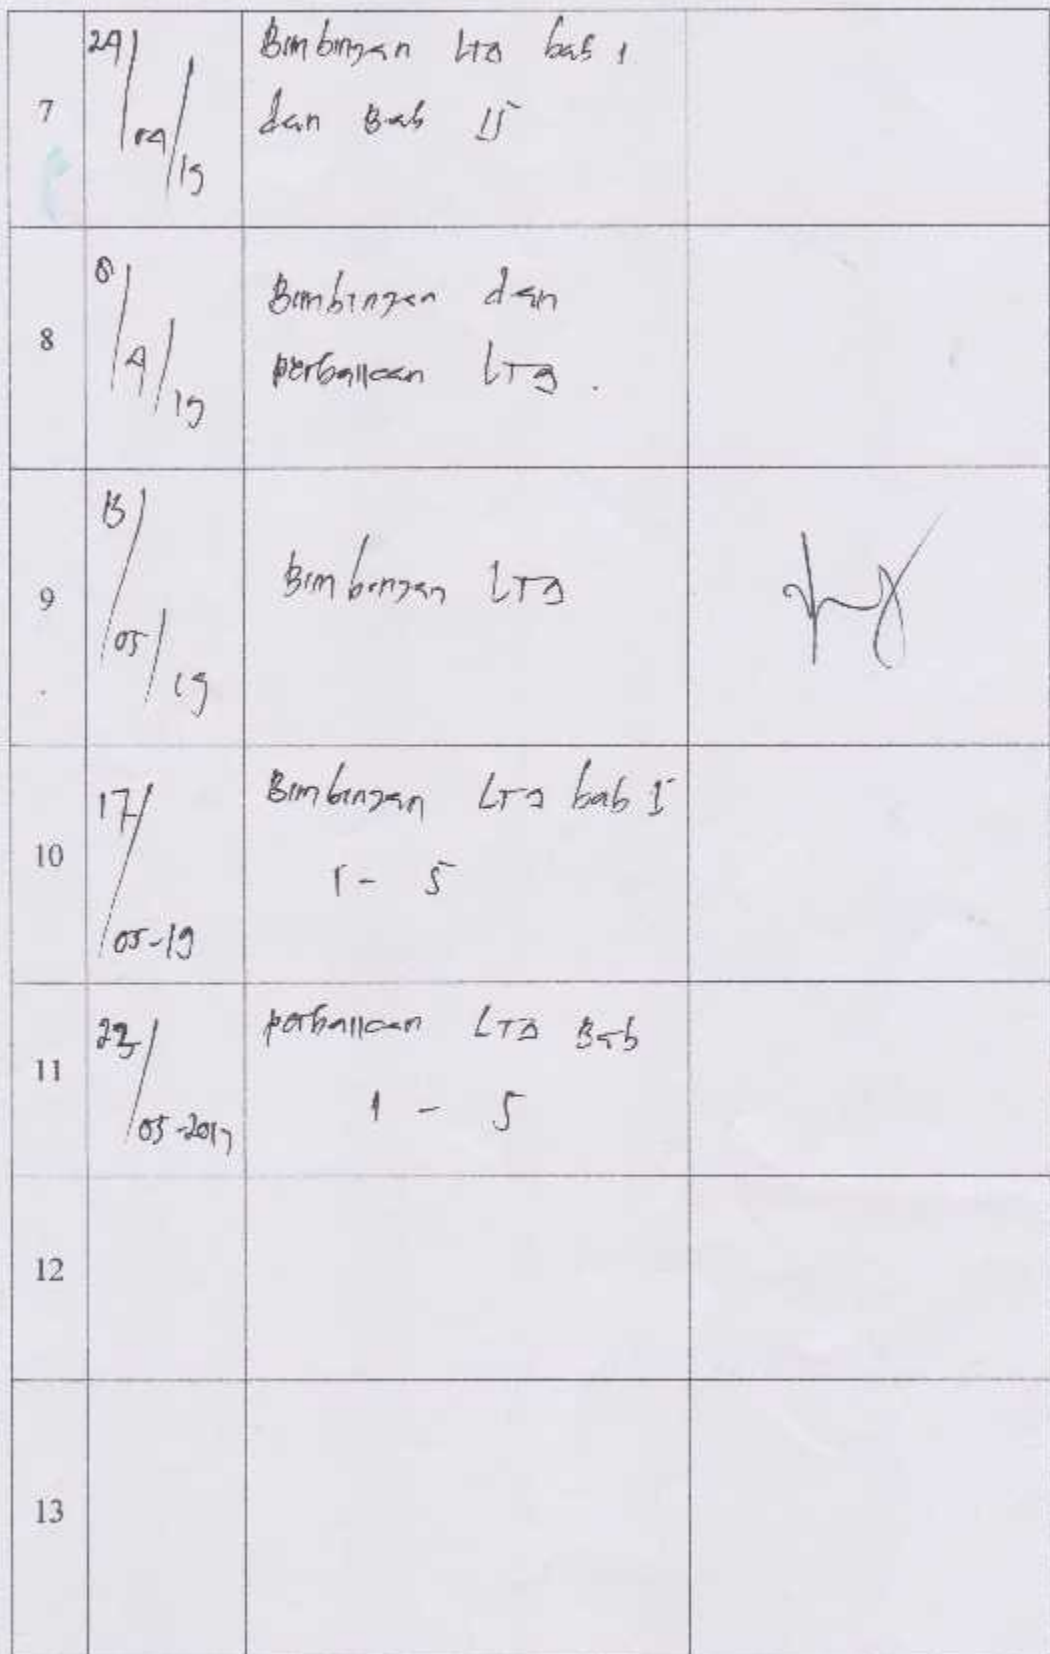 7
24/04/19
Bimbingan LTA bab 1
dan Bab II
8
8/4/19
Bimbingan dan
perbaikan LTA.
9
13/05/19
Bimbingan LTA
10
17/05-19
Bimbingan LTA bab I
1 - 5
11
/05-2019
perbaikan LTA Bab
1 - 5
12
13